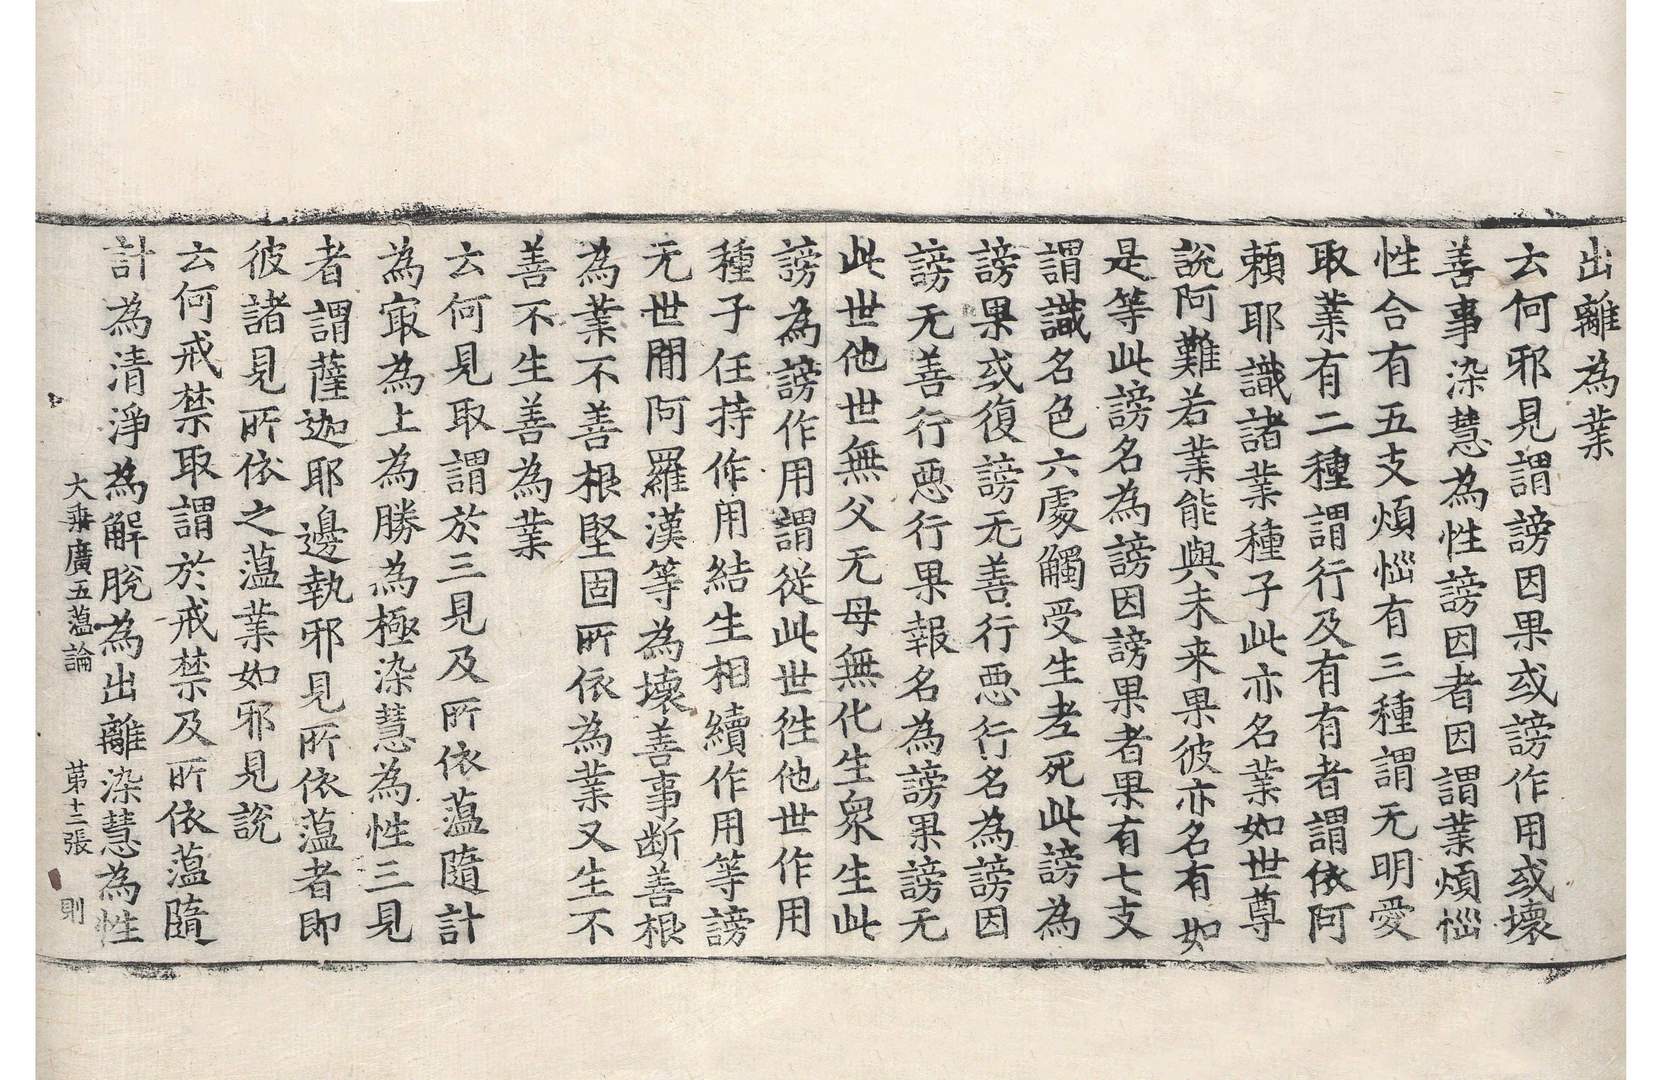 出離為業
云何邪見謂謗因果或謗作用或壞
善事染慧為性謗因者因謂業煩惱
性合有五支煩惱有三種謂无明愛
取業有二種謂行及有有者謂依阿
頼耶識諸業種子此亦名業如世尊
說阿難若業能與未来果彼亦名有如
是等此謗名為謗因謗果者果有七支
謂識名色六處觸受生老死此謗為
謗果或復謗无善行惡行名為謗因
謗无善行惡行果報名為謗果謗无
此世他世無父无母無化生衆生此
謗為謗作用謂從此世徃他世作用
種子任持作用結生相續作用等謗
无世間阿羅漢等為壞善事断善根
為業不善根堅固所依為業又生不
善不生善為業
云何見取謂於三見及所依薀隨計
為㝡為上為勝為極染慧為性三見
者謂薩迦耶邊執邪見所依薀者即
彼諸見所依之薀業如邪見說
云何戒禁取謂於戒禁及所依薀隨
計為清淨為解脫為出離染慧為性
大乗廣五薀論 第十二張 則